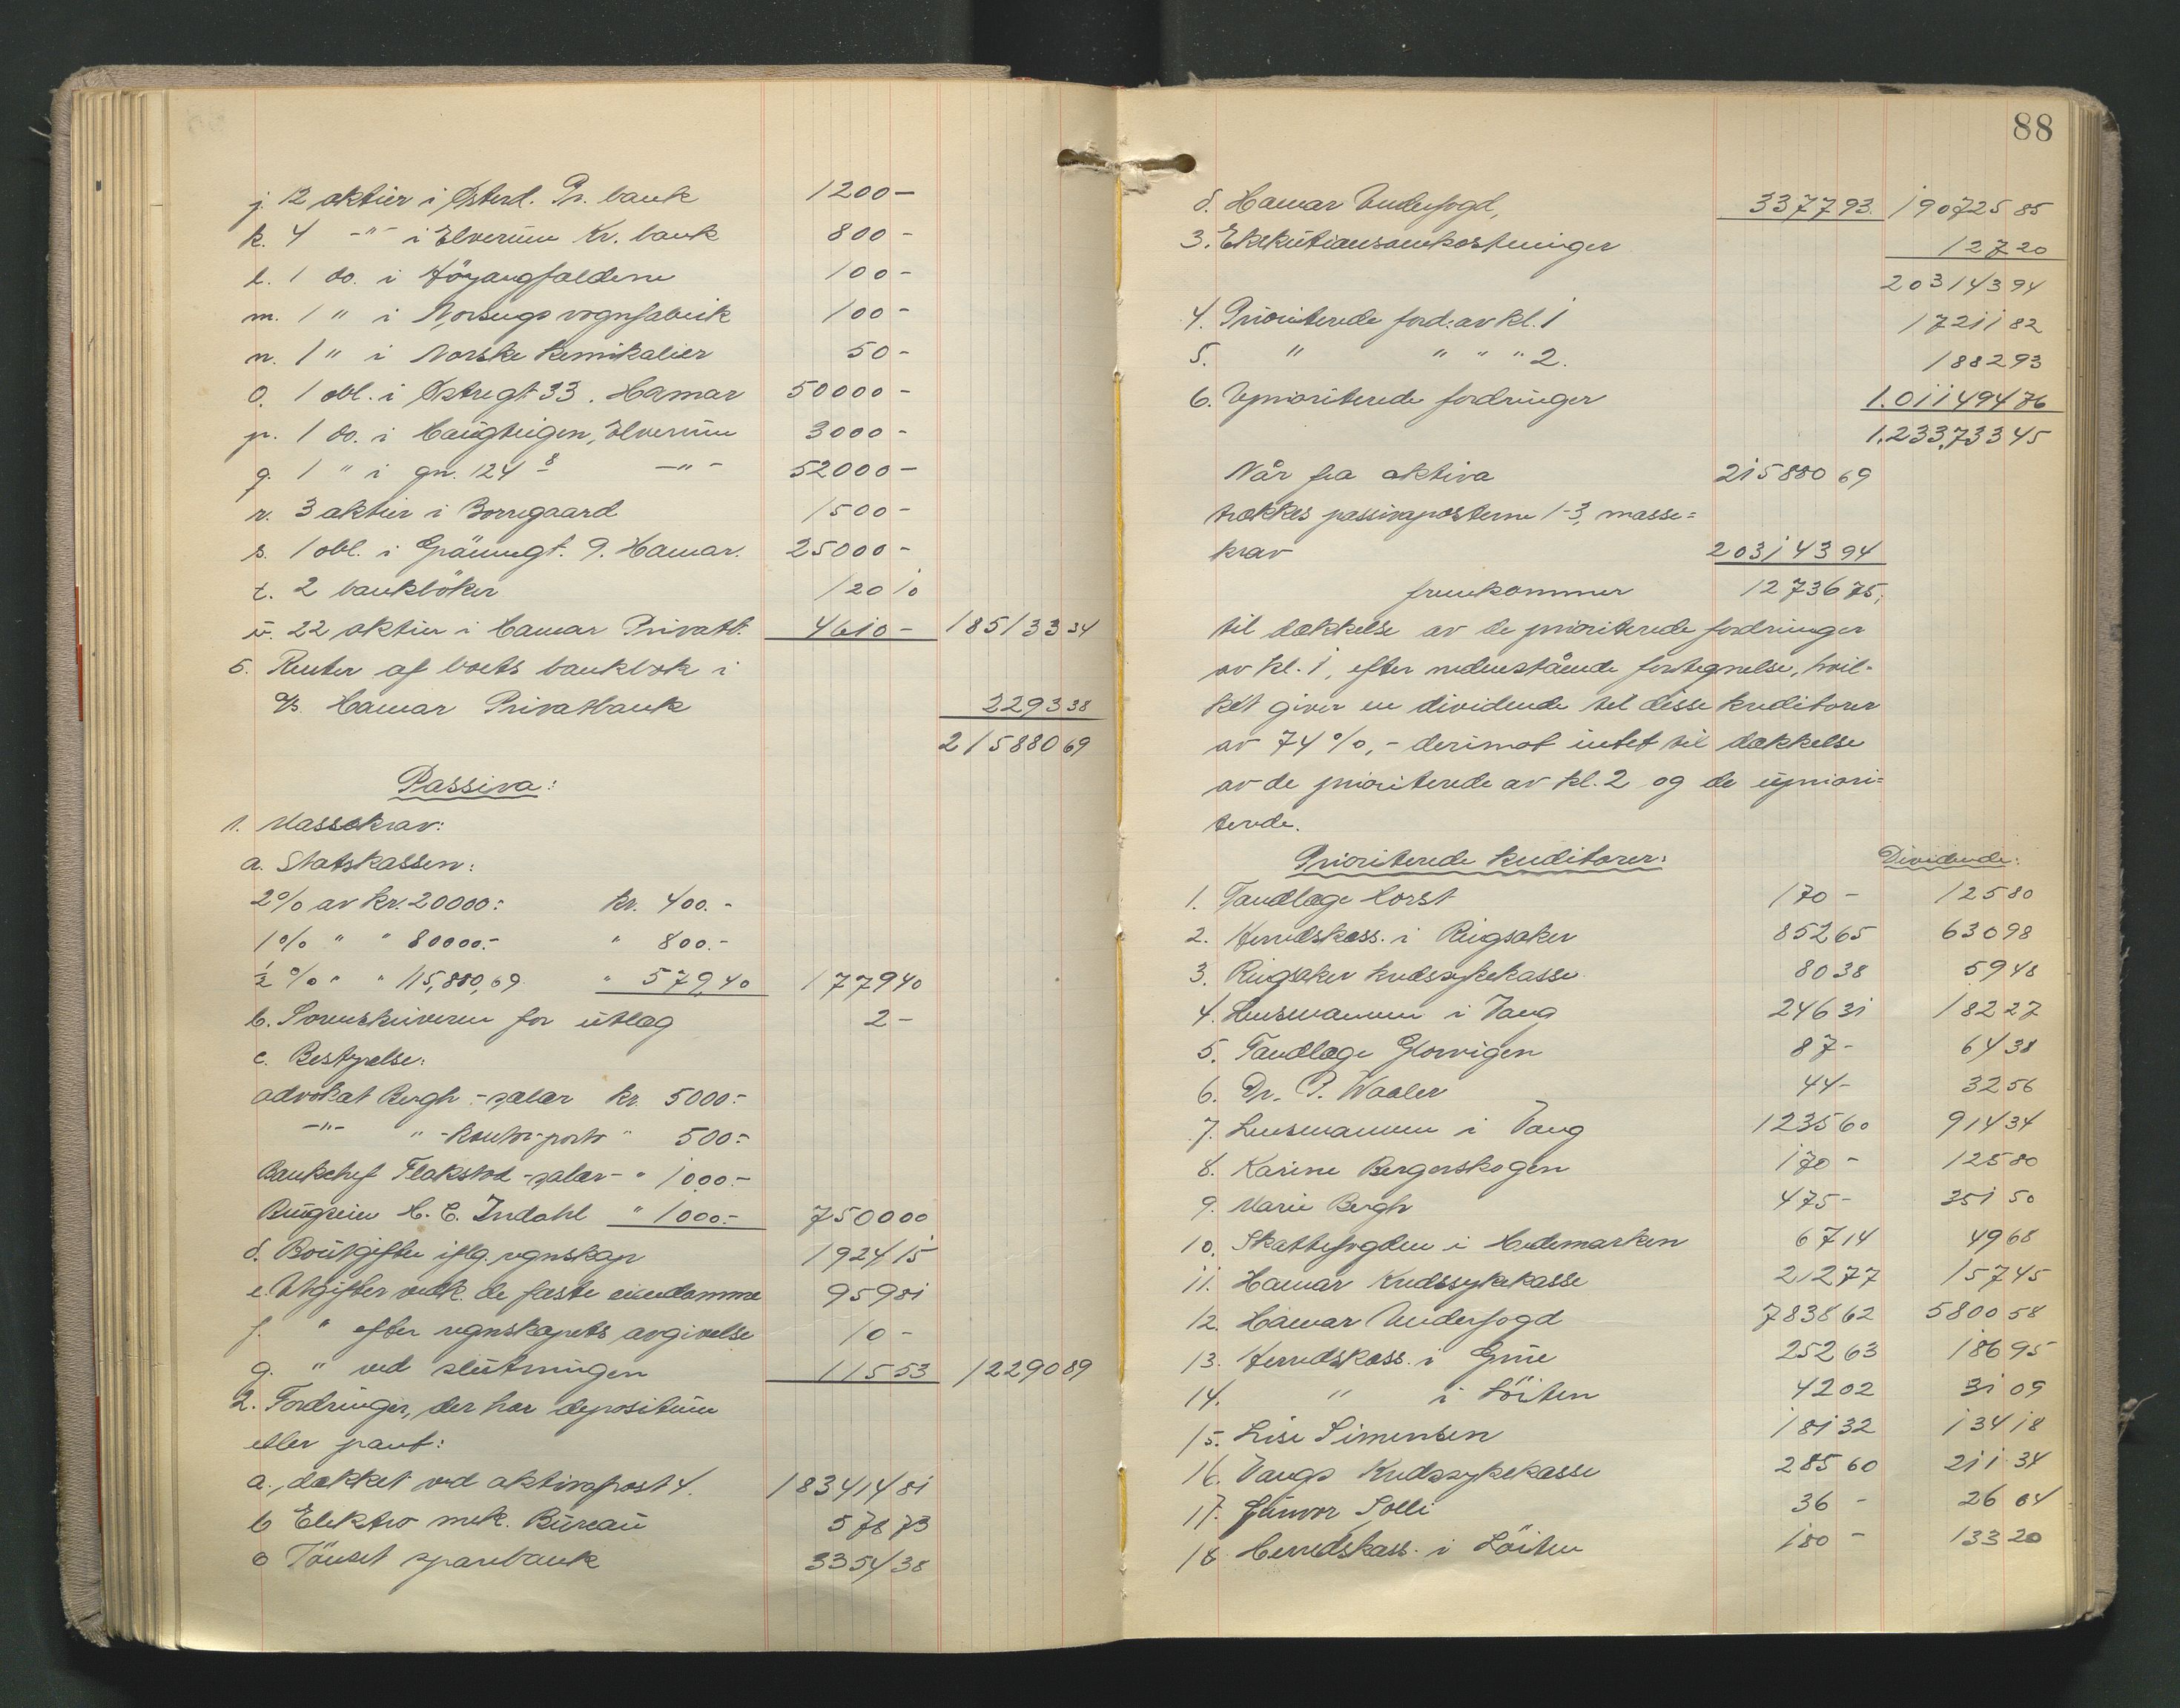 j. 12 aktier i Østerd. Pr. bank 1200 -
k. 4 -"- i Elverum Kr. bank 800 -
l. 1 do. i Höyangfaldene 100 -
m. 1 " i Norsungs vognfabrik 100 -
n. 1 " i Norske Kemikalier 50 -
o. 1 obl. i Østregt. 33. Hamar 50000 -
p. 1 do. i Haugteigen, Elverum 3000 -
q. 1 " i gn. 124 8 -"- 52000 -
r. 3 aktier i Borregaard 1500 -
s. 1 obl. i Grönnegt. 9. Hamar. 25000 -
t. 2 bankböker 120 10
u. 22 aktier i Hamar Privatb. 4610 - 185133 34
5. Renter af boets bankbok i
A/S. Hamar Privatbank 2293 38
215880 69
Passiva:
1. Massekrav:
a. Statskassen:
2% av kr. 20000: kr. 400.-
1% " " 80000.- " 800.-
½ % " " 115,880,69 " 579,40 1779 40
b. Sorenskriveren for utlæg 2 -
c. Bestyrelse:
advokat Bergh - salær kr. 5000.-
-"- " - kontor-porto " 500.-
Bankchef Flakstad - salær - " 1000.-
Bungsien H. C. Indahl " 1000.- 7500 00
d. Boutgifter iflg. regnskap 1924 15
e. Utgifter vedk. de faste eiendomme 959 81
f. " efter regnskapets avgivelse 10 -
g. " ved slutningen 115 53 12290 89
2. Fordringer, der har depositum
eller pant:
a., dækket ved aktivapost 4. 183414 81
b Elektro mek. Bureau 578 73
c Tönset sparebank 3354 38
88
d. Hamar Underfogd, 3377 93. 190725 85
3. Eksekutionsomkostninger 127 20
203143 94
4. Prioriterede ford. av kl. 1 17211 82
5. " " " " 2. 1882 93
6. Uprioriterede fordringer 1.011494 76
1.233,733 45
Når fra aktiva 215880 69
trækkes passivaposterne 1-3, masse=
krav 203143 94
fremkommer 12736 75,
til dækkelse av de prioriterede fordringer
av kl. 1, efter nedenstående fortegnelse, hvil-
ket giver en dividende til disse kreditorer
av 74 %, - derimot intet til dækkelse
av de prioriterede av kl. 2 og de upriori=
terede.
Prioriterede kreditorer: Dividende:
1. Tandlæge Horst 170 - 125 80
2. Herredskass. i Ringsaker 852 65 630 98
3. Ringsaker kredssykekasse 80 38 59 48
4. Lensmannen i Vang 246 31 182 27
5. Tandlæge Glorvigen 87 - 64 38
6. Dr. P. Waaler 44 - 32 56
7. Lensmannen i Vang 1235 60 914 34
8. Karine Bergerskogen 170 - 125 80
9. Marie Bergh 475 - 351 50
10. Skattefogden i Hedemarken 67 14 49 68
11. Hamar Kredssykekasse 212 77 157 45
12. Hamar Underfogd 7838 62 5800 58
13. Herredskass. i Grue 252 63 186 95
14. " i Löiten 42 02 31 09
15. Lise Simensen 181 32 134 18
16. Vangs Kredssykekasse 285 60 211 34
17. Gunvor Solli 36 - 26 64
18. Herredskass. i Löiten 180 - 133 20